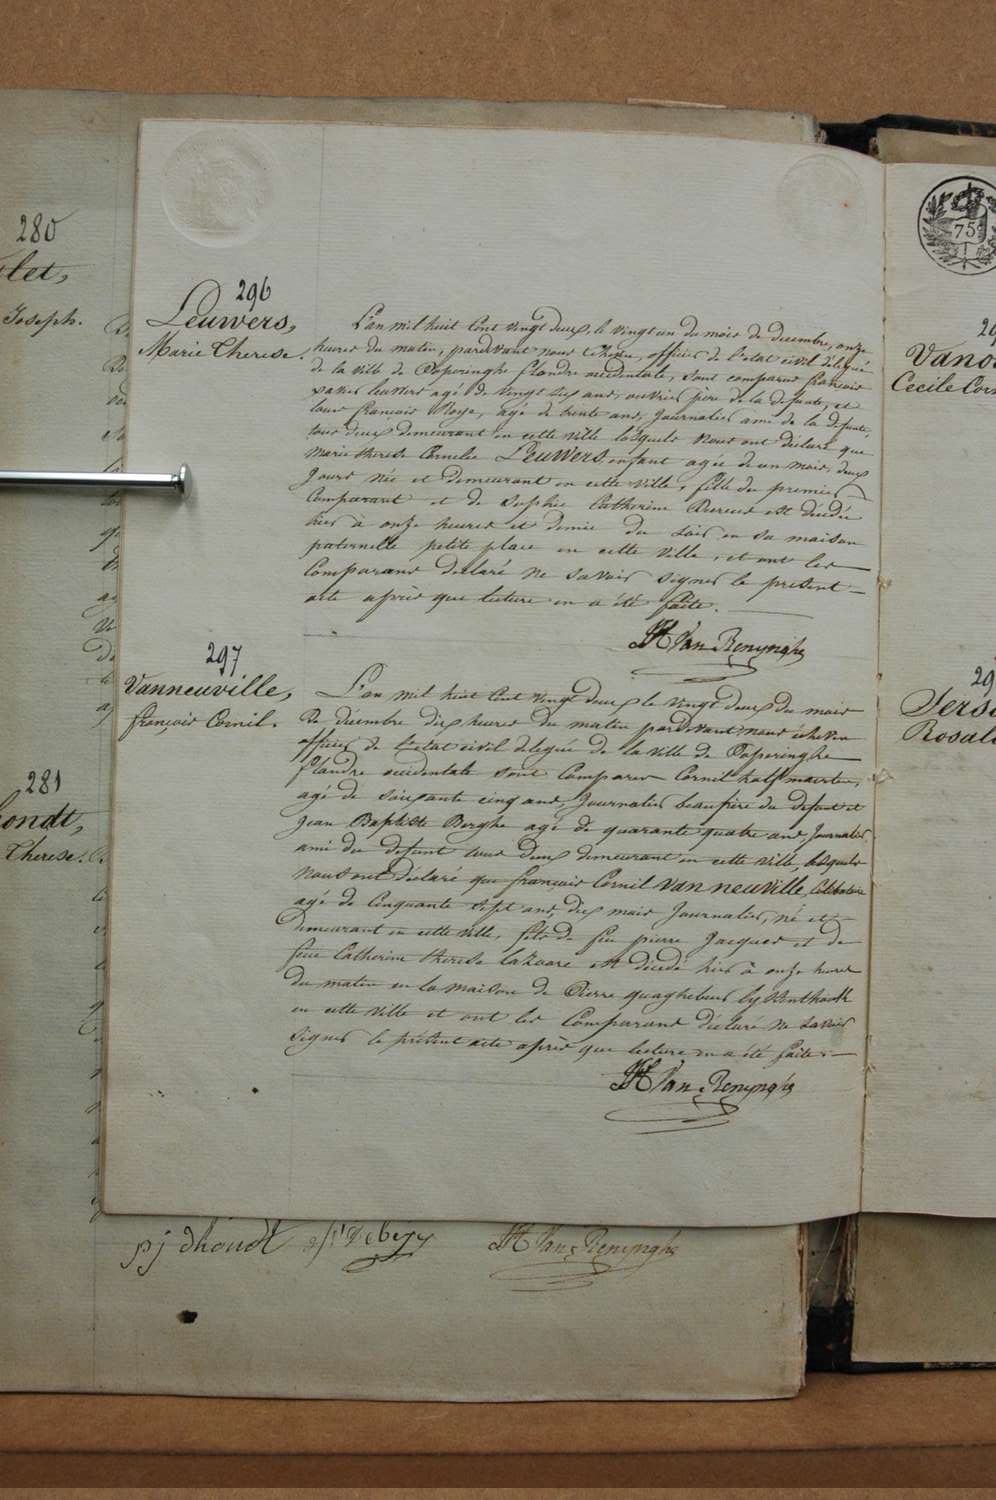 280
let,
Joseph.
281
ondt,
Therese.
296
Leuwers,
Marie Therese.
L'an mil huit Cent vingt deux, le vingt un du mois de decembre, onze
heures du matin, pardevant nous echevin, officier de l'etat civil délegué
de la ville de Poperinghe flandre occidentale, sont comparus francois
xavier leuwers agé de vingt six ans, ouvrier père de la defunte, et
louis francois Roye, agé de trente ans, journalier ami de la defunte,
tous deux demeurant en cette ville lesquels nous ont déclaré que
Marie therese Cornelie Leuwers enfant agée de un mois, deux
jours née et demeurant en cette ville, fille du premier
Comparant et de Sophie Catherine est décédée
hier à onze heures et demie du soir en sa maison
paternelle petite place en cette ville, et ont les
Comparans declaré ne savoir signer le present
acte après que lecture en a été faite.
Van Renynghe
297
Vanneuville,
françois Cornil.
L'an mil huit Cent vingt deux le vingt deux du mois
De décembre dix heures du matin pardevant nous échevin
officier de l'etat civil delegué de la ville de Poperinghe
flandre occidentale sont Comparus Cornil halfmaerten,
agé de soixante cinq ans, Journalier beaufrère du defunt et
Jean Baptiste Berghe agé de quarante quatre ans Journalier
ami du defunt tous deux demeurant en cette ville, lesquels
nous ont déclaré que francois Cornil Vanneuville, Celibataire
agé de Cinquante sept ans, dix mois Journalier, né et
demeurant en cette ville, fils de feu pierre Jacques et de
feue Catherine therese lazoore est décedé hier à onze heures
du matin en la maison de Pierre quaghebeur
en cette ville et ont les Comparans déclaré ne savoir
signer le présent acte après que lecture en a été faite.
Van Renynghe
pj dhondt
Van Renynghe
75
29
Vano
Cecile Cor
29
Rosal